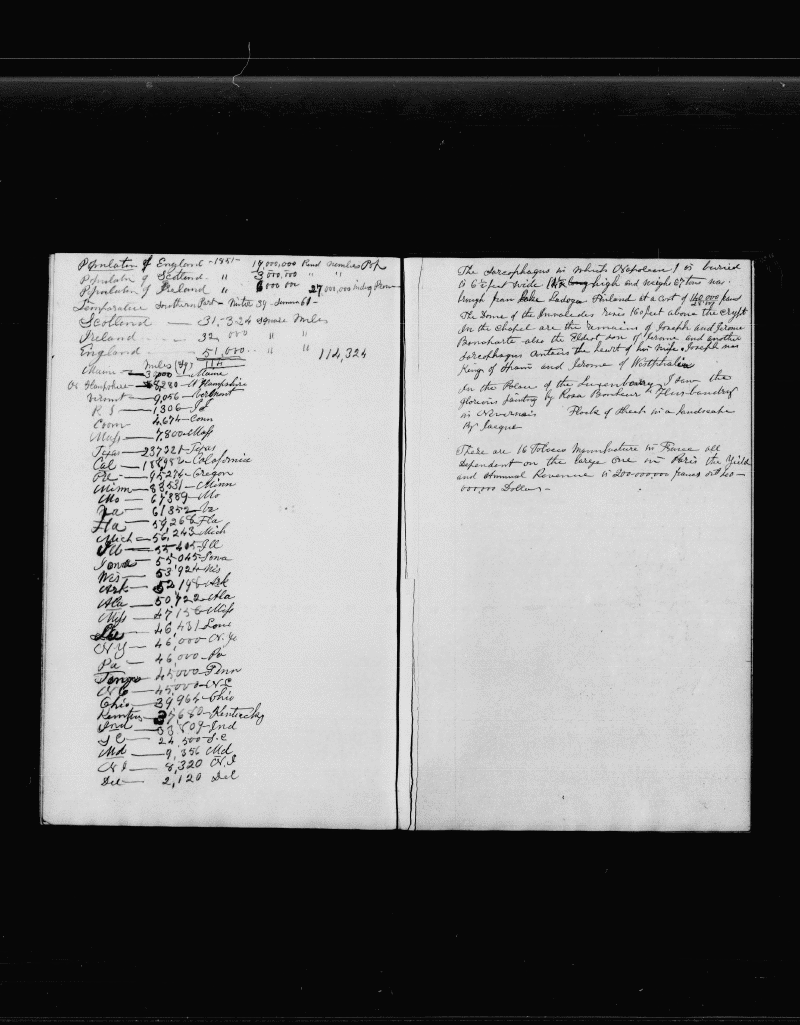 Population of England - 1851 - 18,000,000
Population of Scotland " 3 000,000 " "
Population of Ireland " 6 000 00 27,000,000
Temperature Southern Part - Winter 39 - Summer 61 -
Scotland — 31,324 square Miles
Ireland 32 000 " "
England 51,000 " " 114,324
Miles (sq)
Maine Maine
N Hampshire 9,280 - N Hampshire
Vermont 9,056 - Vermont
R. I 1,306 Id
Conn 4,674 - Conn
Mass 7,800 - Mass
Texas - 237321 - Texas
Cal - 188982 - California
95274 - Oregon
Minn - 83531 - Minn
Mo - 67389 - Mo
Va - 61352 - Va
Fla - 59,268 Fla
Mich - 56,243 Mich
Ill - 55 405 Ill
Iowa - 55 045 Iowa
Wis - 53,924 Wis
Ark - 52198 Ark
Ala - 50722 - Ala
Miss - 47,156 Miss
46,431 Loui
N.Y - 46,000 - N.Y.
Pa - 46,000 - Pa
45,000 - Tenn
N C - 45,000 - N.C
Ohio - 39,964 - Ohio
37680 - Kentucky
Ind - 33,809 - Ind
S C - 24,500 S.C
Md - 9,356 Md
N J - 8,320 N.J
Del - 2,120 Del
The Sarcophagus in which Napoleon 1 is buried
is 6½ feet wide high and weighs 67 tons was
brough from Lake Ladoga Finland at a cost of
The Dome of the Invaledes rises 160 feet above the crypt
In the Chapel are the remains of Joseph and Jerome
Bonoharte also the Eldest son of Jerome and another
Sarcophagus contains the heart of his wife. Joseph was
King of Spain and Jerome of Westphalia
In the Palace of the Luxenberry I saw the
glorious painting by Rosa Bonheur
in Nivernais Flock of Sheep in a landscape
By Jacque
There are 16 Tobacco Manufacture in France all
dependent on the large one in Paris the Yield
and Annual Revenue is 200.000.000 francs
000,000 Dollars -